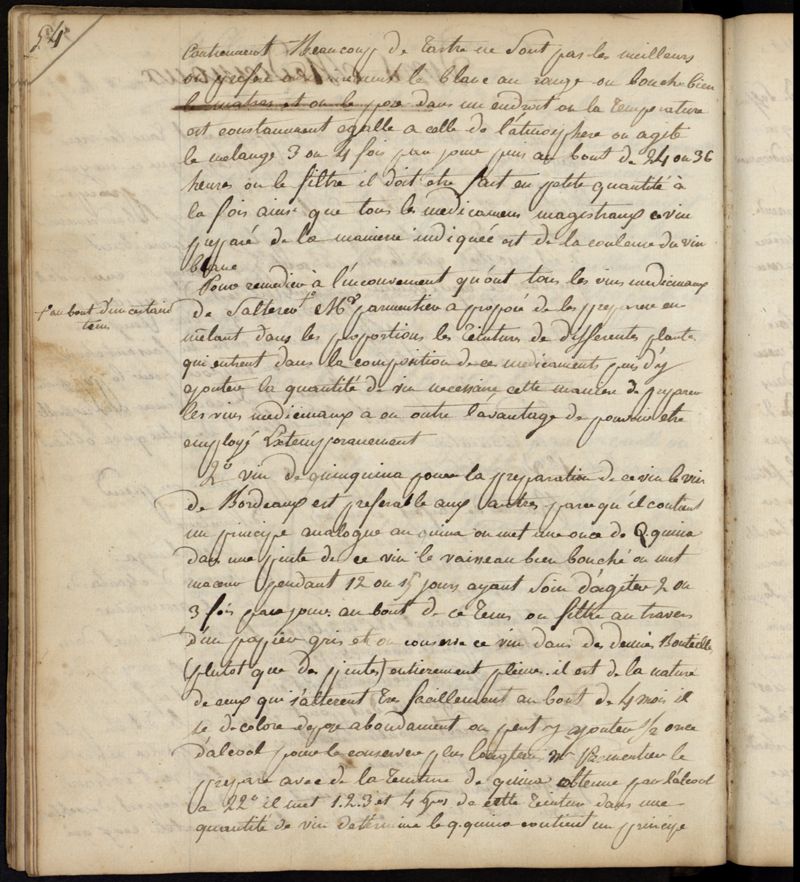 54
Contiennent Beaucoup de tartre ne sont pas les meilleurs
on préfère le blanc au rouge on bouche bien
le matras et on le pose dans un endroit ou la température
est constamment egalle a celle de l'atmosphere on agite
le melange 3 ou 4 fois par jour puis au bout de 24 ou 36
heures on le filtre il doit etre fait en petite quantité à
la fois ainsi que tous les medicamens magistraux ce vin
preparé de la maniere indiquée est de la couleur du vin
blanc
Pour remedier à l'inconvenient qu'ont tous les vins medicinaux
+ au bout d'un certain
tems
de s'alterer + Mr parmentier a proposé de les preparer en
mêlant dans les proportions les teintures de differentes plantes
qui entrent dans la composition de ces medicaments puis d'y
ajouter la quantité de vin necessaire cette maniere de preparer
les vins medicinaux a en outre l'avantage de pouvoir etre
employé Extemporanement
2° vin de quinquina pour la preparation de ce vin le vin
de Bordeaux est preferable aux autres parcequ'il contient
un principe analogue au quina on met une once de Q.quina
dans une pinte de ce vin le vaisseau bien bouché on met
macerer pendant 12 ou 15 jours ayant soin d'agiter 2 ou
3 fois par jour. au bout de ce tems on filtre au travers
d'un papier gris et on conserve ce vin dans des demies Bouteille
(plutot que des pintes) entierement pleine. il est de la nature
de ceux qui s'alterent tres facillement au bout de 4 mois il
se decolore depose abondament on peut y ajouter 1/2 once
d'alcool pour le conserver plus longtems Mr Parmentier le
prepare avec de la teinture de quina obtenue par l'alcool
a 22° il met 1.2.3 et 4 gros de cette teinture dans une
quantité de vin determiné le q.quina contient un principe